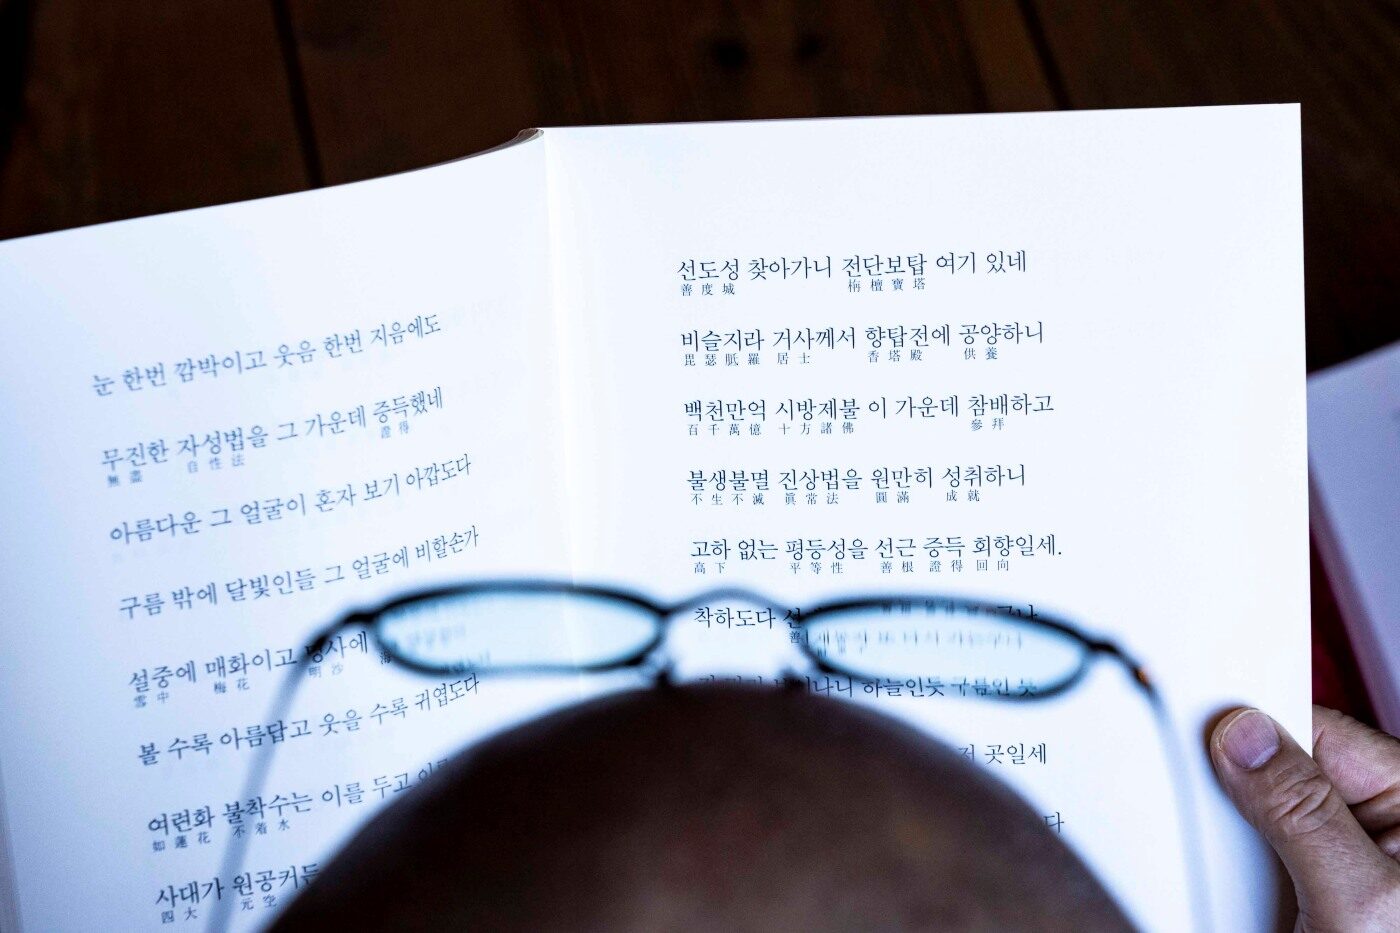 눈 한번 깜박이고 웃음 한번 지음에도
무진한 자성법을 그 가운데 증득했네
無盡 自性法 證得
아름다운 그 얼굴이 혼자 보기 아깝도다
구름 밖에 달빛인들 그 얼굴에 비할손가
설중에 매화이고 명사에
雪中 梅花 明沙 海
볼 수록 아름답고 웃을 수록 귀엽도다
여련화 불착수는 이를 두고
如蓮花 不着水
사대가 원공커든
四大 元空
선도성 찾아가니 전단보탑 여기 있네
善度城 栴檀寶塔
비슬지라 거사께서 향탑전에 공양하니
毘瑟胝羅 居士 香塔殿 供養
백천만억 시방제불 이 가운데 참배하고
百千萬億 十方諸佛 參拜
불생불멸 진상법을 원만히 성취하니
不生不滅 眞常法 圓滿 成就
고하 없는 평등성을 선근 증득 회향일세.
高下 平等性 善根 證得 回向
착하도다
善
하늘인듯 구름인 듯
곳일세
다